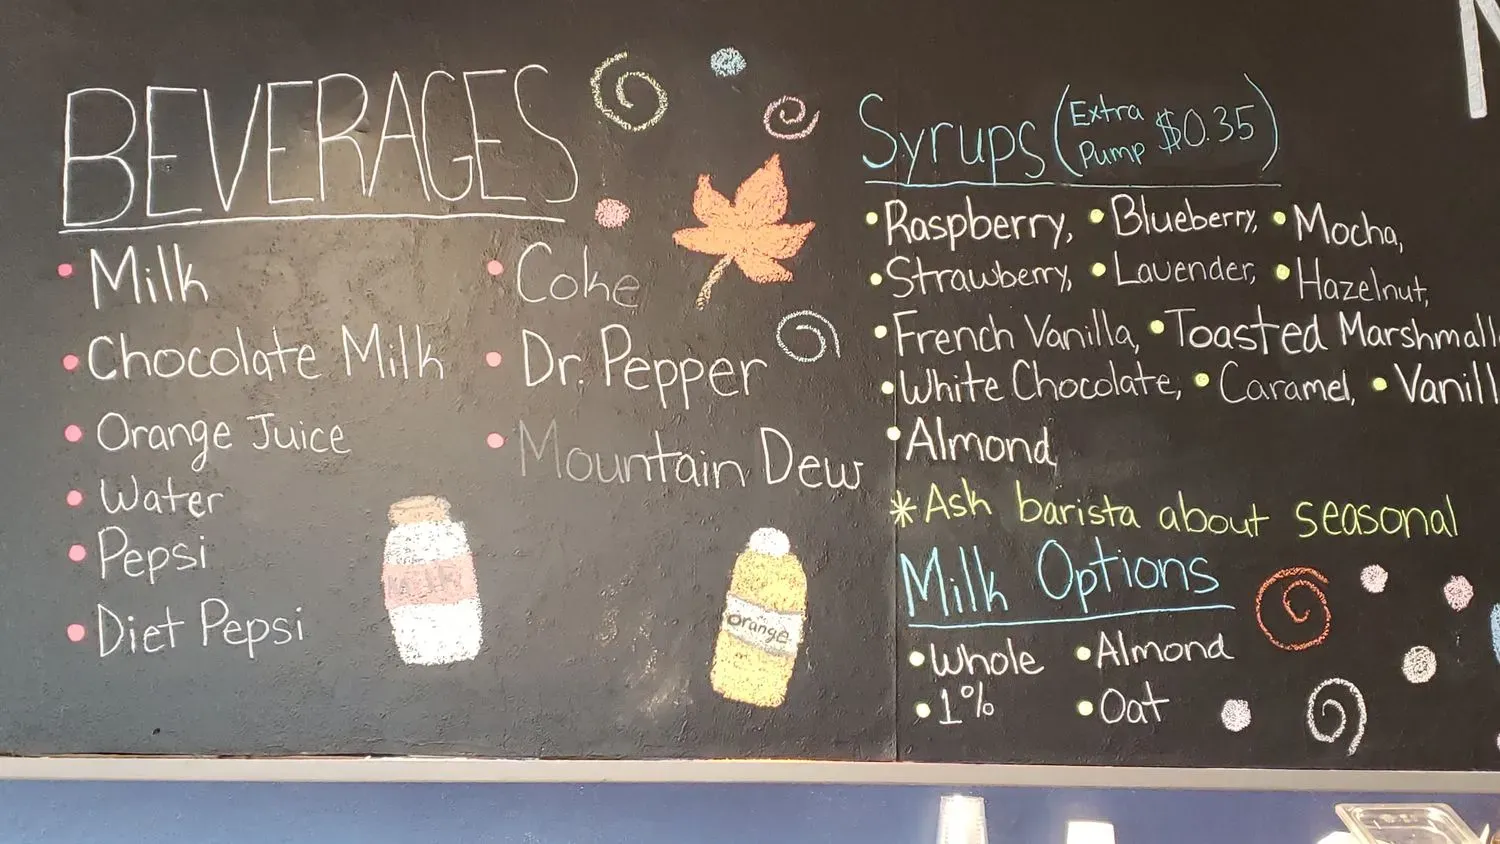 BEVERAGES
• Milk
• Chocolate Milk
• Orange Juice
• Water
• Pepsi
• Diet Pepsi
• Coke
• Dr. Pepper
• Mountain Dew
Milk
Orange
Syrups (Extra Pump $0.35)
• Raspberry, • Blueberry, • Mocha,
• Strawberry, • Lavender, • Hazelnut,
• French Vanilla, • Toasted Marshmall
• White Chocolate, • Caramel, • Vanill
• Almond
*Ask barista about seasonal
Milk Options
• Whole • Almond
• 1% • Oat